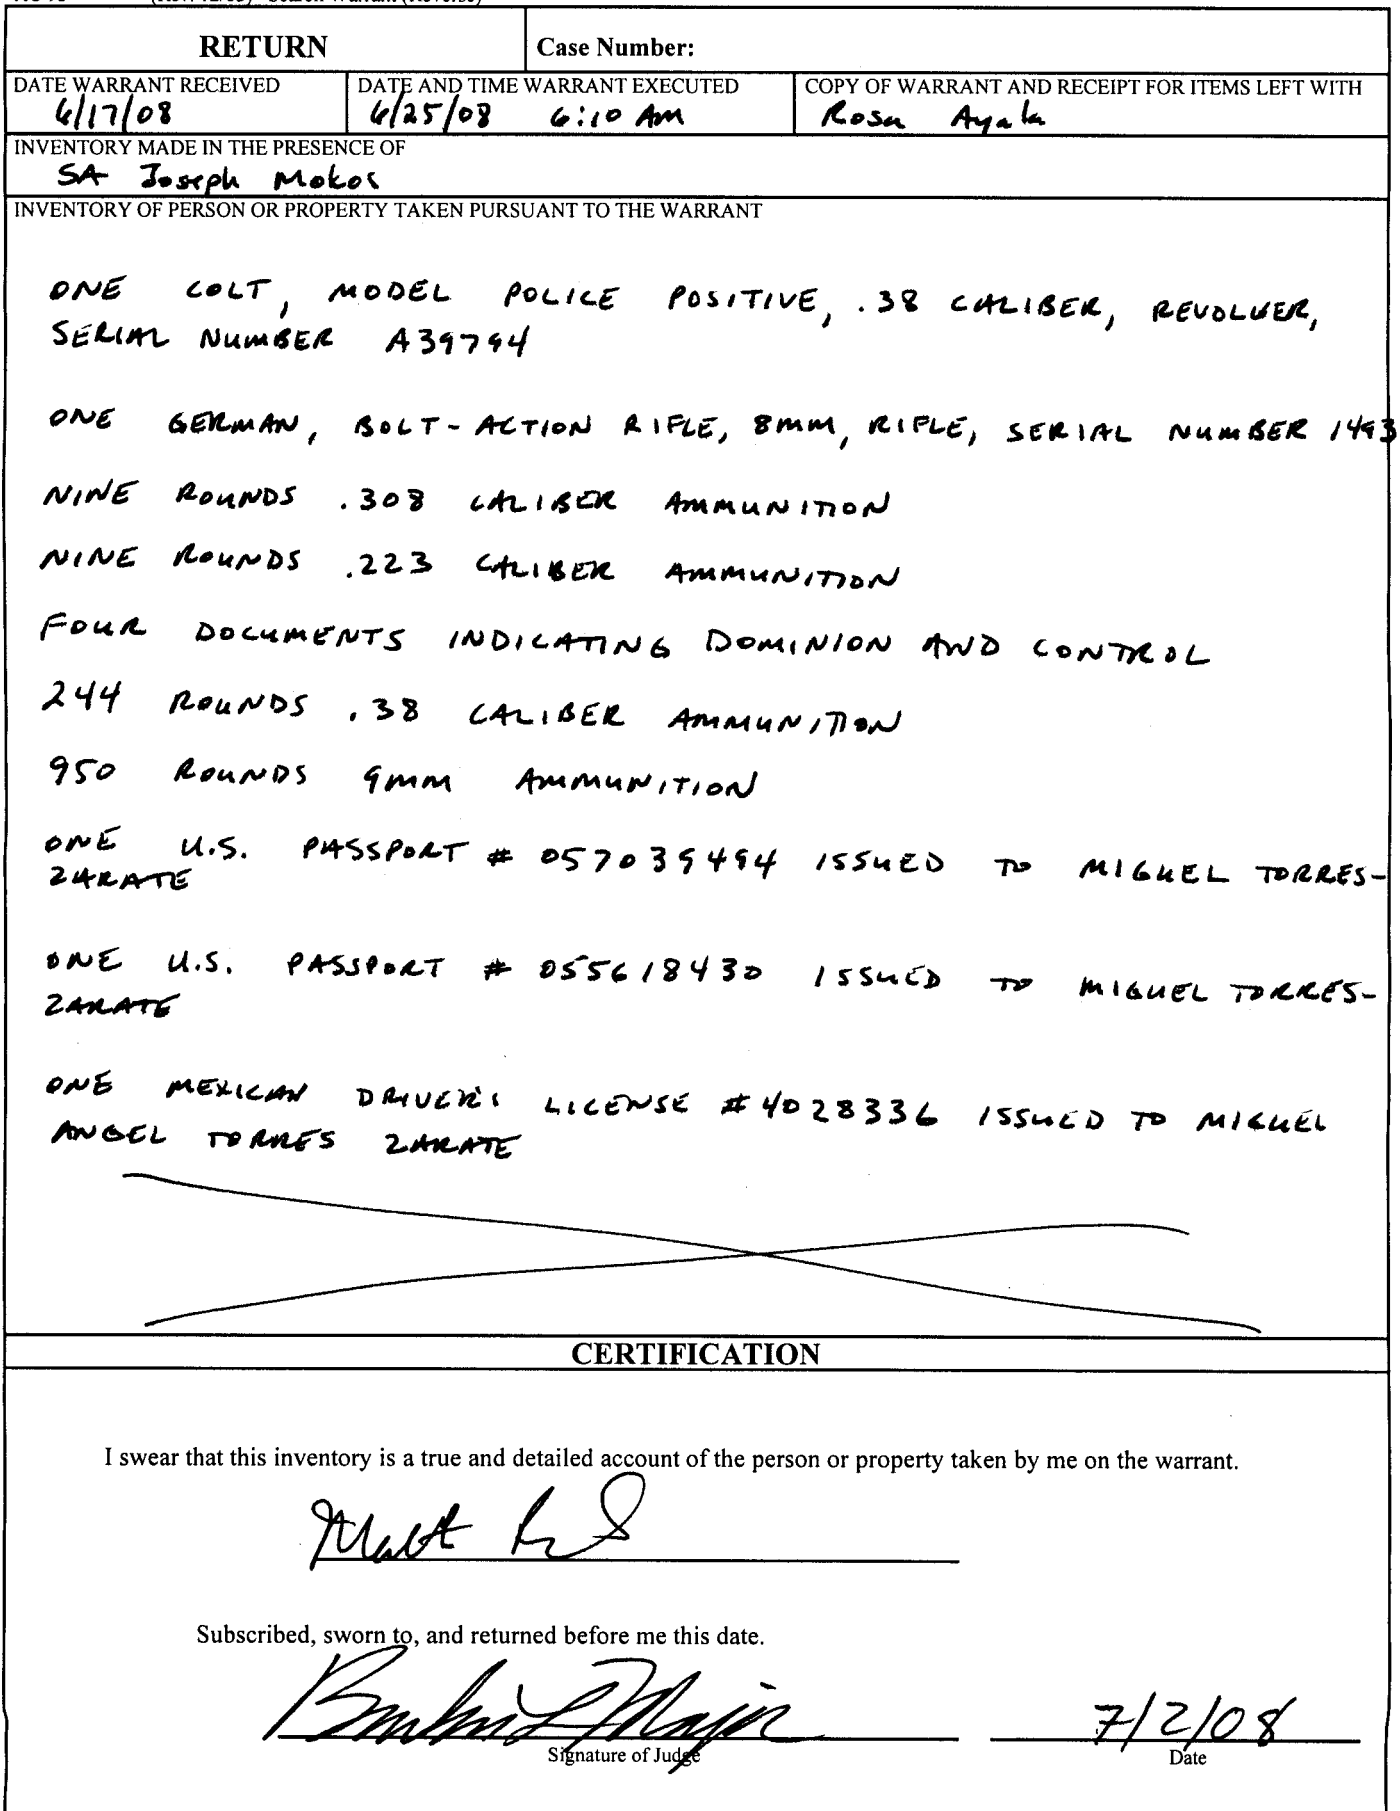 (Rev. 12/03) Search Warrant (Reverse)
RETURN Case Number:
DATE WARRANT RECEIVED DATE AND TIME WARRANT EXECUTED COPY OF WARRANT AND RECEIPT FOR ITEMS LEFT WITH
6/17/08 6/25/08 6:10 AM Rosa Ayala
INVENTORY MADE IN THE PRESENCE OF
SA Joseph Mokos
INVENTORY OF PERSON OR PROPERTY TAKEN PURSUANT TO THE WARRANT
ONE COLT, MODEL POLICE POSITIVE, .38 CALIBER, REVOLVER,
SERIAL NUMBER A39794
ONE GERMAN, BOLT-ACTION RIFLE, 8MM, RIFLE, SERIAL NUMBER 1493
NINE ROUNDS .308 CALIBER AMMUNITION
NINE ROUNDS .223 CALIBER AMMUNITION
FOUR DOCUMENTS INDICATING DOMINION AND CONTROL
244 ROUNDS .38 CALIBER AMMUNITION
950 ROUNDS 9MM AMMUNITION
ONE U.S. PASSPORT # 057039494 ISSUED TO MIGUEL TORRES-
ZARATE
ONE U.S. PASSPORT # 055618430 ISSUED TO MIGUEL TORRES-
ZARATE
ONE MEXICAN DRIVER'S LICENSE #4028336 ISSUED TO MIGUEL
ANGEL TORRES ZARATE
CERTIFICATION
I swear that this inventory is a true and detailed account of the person or property taken by me on the warrant.
Matt
Subscribed, sworn to, and returned before me this date.
L Major 7/2/08
Signature of Judge Date